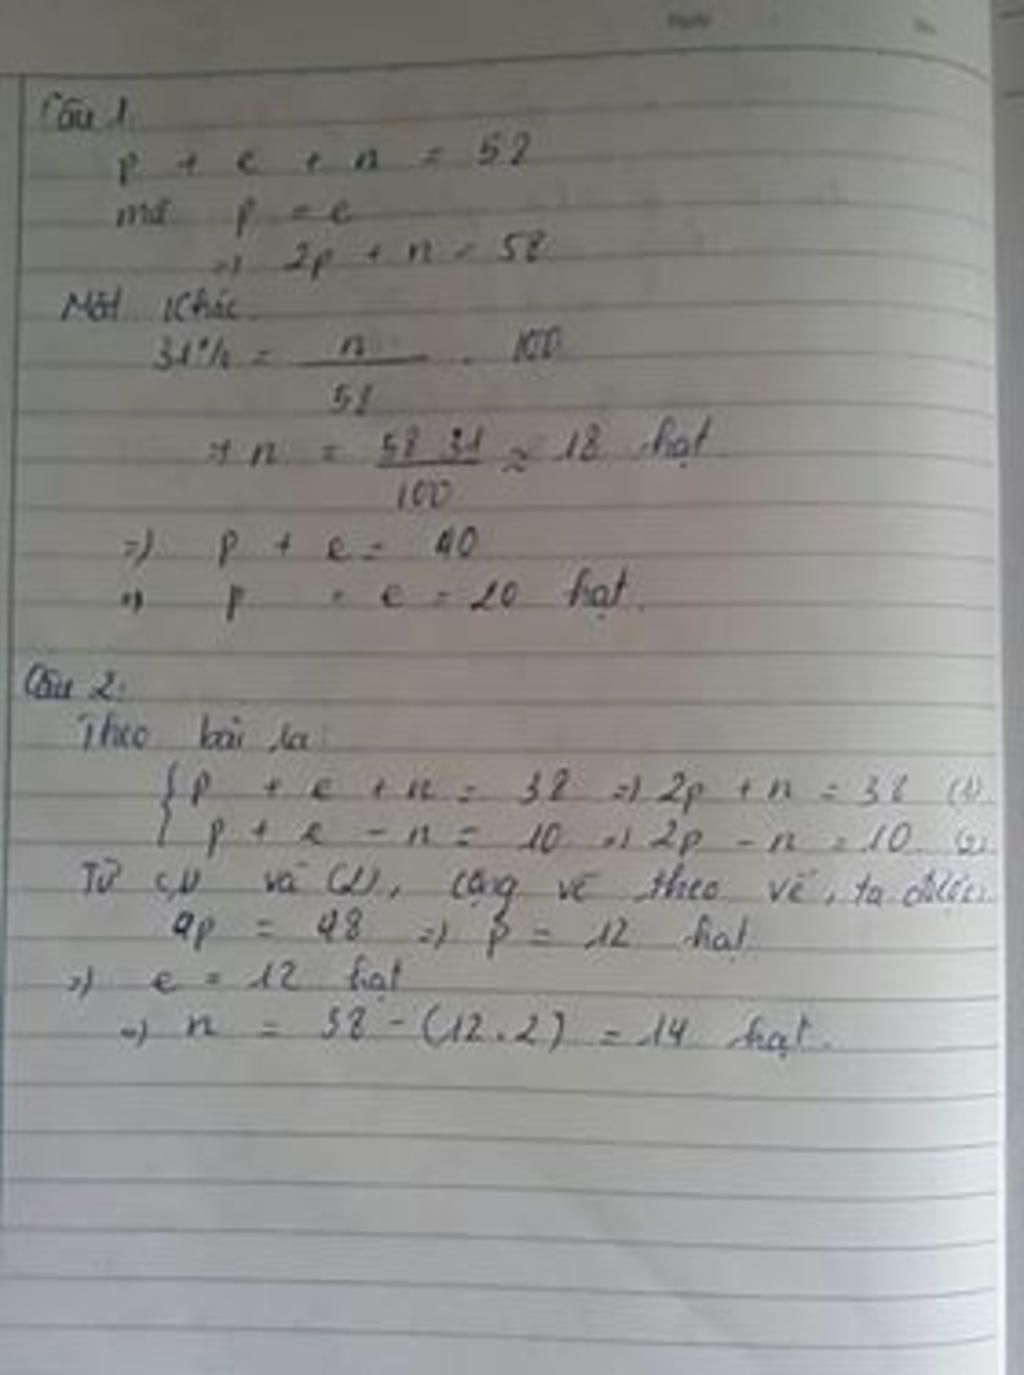 Câu 1:
p + e + n = 58
mà p = e
=> 2p + n = 58
Mặt khác:
31% = n / 58 . 100
=> n = 58.31 / 100 ≈ 18 hạt
=> p + e = 40
=> p = e = 20 hạt.
Câu 2:
Theo bài ra:
{ p + e + n = 38 => 2p + n = 38 (1)
p + e - n = 10 => 2p - n = 10 (2)
Từ (1) và (2), cộng vế theo vế, ta được:
4p = 48 => p = 12 hạt
=> e = 12 hạt
=> n = 38 - (12.2) = 14 hạt.